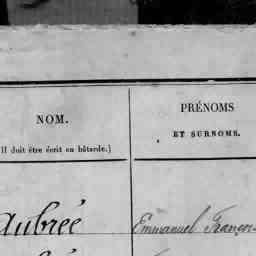 NOM.
Il doit être écrit en bâtarde.)
PRÉNOMS
ET SURNOMS.
Aubreé
Emmanuel François